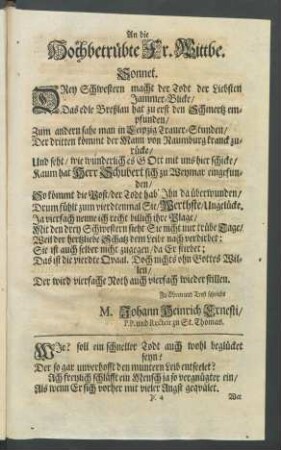 An die
Hochbetrübte Fr. Wittbe.
Sonnet.
DRey Schwestern macht der Todt der Liebsten
Jammer-Blicke/
Das edle Breßlau hat zu erst den Schmertz em-
pfunden/
Zum andern sahe man in Leipzig Trauer-Stunden/
Der dritten kömmt der Mann von Naumburg kranck zu-
rücke/
Und seht/ wie wunderlich es GOtt mit uns hier schicke/
Kaum hat Herr Schubert sich zu Weymar eingefun-
den/
So kömmt die Post/ der Todt hab' Ihn da überwunden/
Drum fühlt zum vierdtenmal Sie/ Wertheste/ Ungelücke.
Ja vierfach nenne ich recht billich ihre Plage/
Mit den drey Schwestern sieht Sie nicht nur trübe Tage/
Weil der hertzliebe Schatz dem Leibe nach verdirbet;
Sie ist auch selber nicht zugegen/ da Er stirbet;
Das ist die vierdte Qvaal. Doch nichts ohn Gottes Wil-
len/
Der wird vierfache Noth auch vierfach wieder stillen.
Zu Ehren und Trost schrieb
M. Johann Heinrich Ernesti/
P. P. und Rector zu St. Thomas.
WIe? soll ein schneller Todt auch wohl beglücket
seyn?
Der so gar unverhofft den muntern Leib entseelet?
Ach freylich schläfft ein Mensch ja so vergnügter ein/
Als wenn Er sich vorher mit vieler Angst geqvälet.